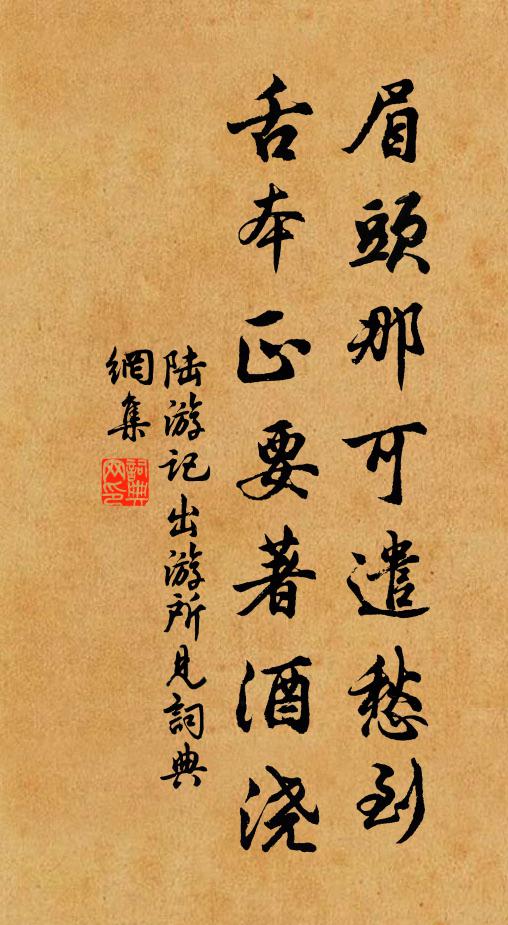 眉頭那可遣愁到
舌本正要著酒浇
陆游记出游所見詞典
網集
詞典
网印